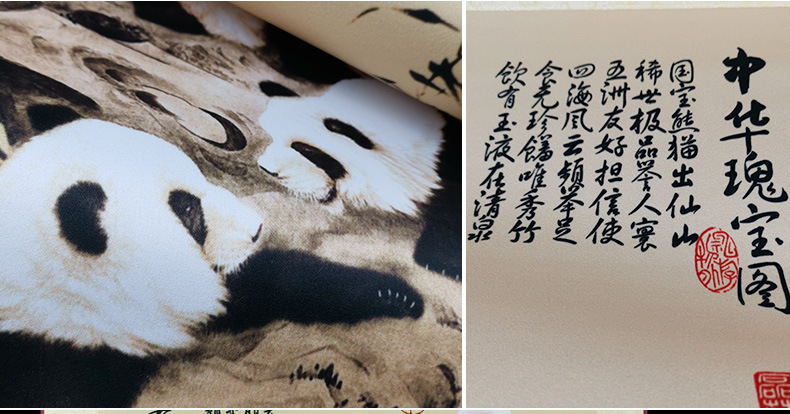 中华瑰宝图
国宝熊猫出仙山
稀世极品誉人寰
五洲友好担信使
四海风云频举足
含光珍馐唯秀竹
饮有玉液在清泉